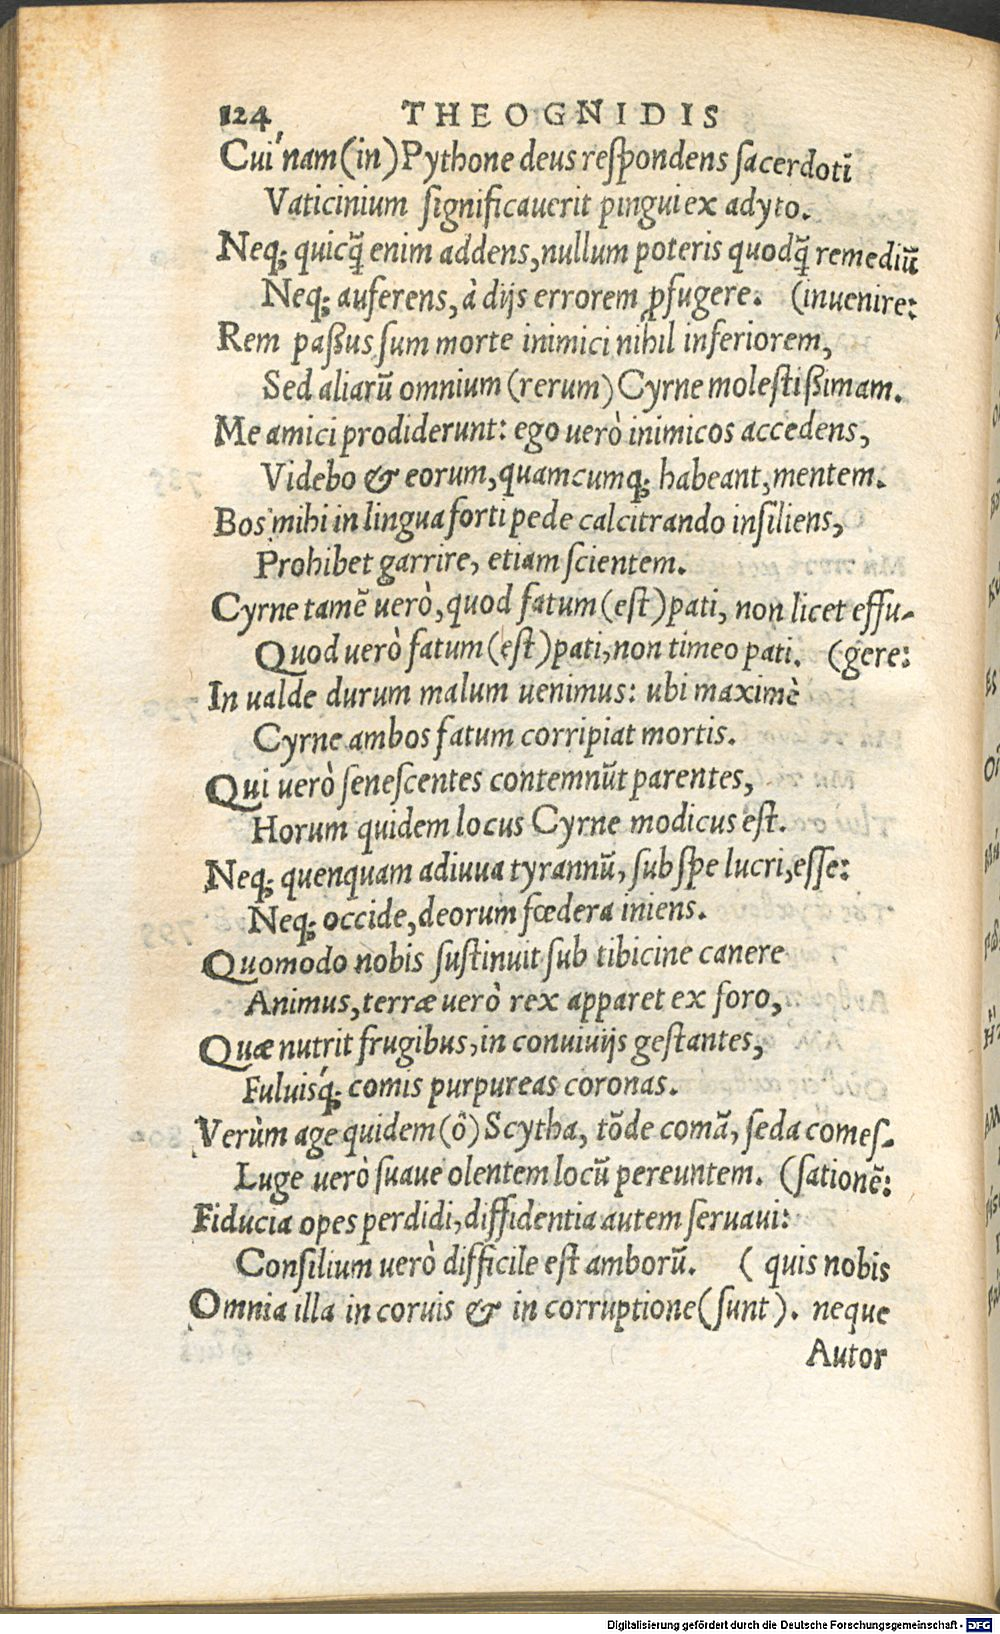 124 THEOGNIDIS
Cui´nam (in) Pythone deus reſpondens ſacerdotĩ
Vaticinium ſignificauerit pingui ex adyto.
Neq; quicq̃ enim addens, nullum poteris quodq̃ remediũ
Neq; auferens, à dijs errorem ꝓfugere. (inuenire:
Rem paßus ſum morte inimici nihil inferiorem,
Sed aliarũ omnium (rerum) Cyrne moleſtißimam.
Me amici prodiderunt: ego uerò inimicos accedens,
Videbo & eorum, quamcumq; habeant, mentem.
Bos mihi in lingua forti pede calcitrando inſiliens,
Prohibet garrire, etiam ſcientem.
Cyrne tamẽ uerò, quod fatum (eſt) pati, non licet effu-
Quod uerò fatum (eſt) pati, non timeo pati. (gere:
In ualde durum malum uenimus: ubi maximè
Cyrne ambos fatum corripiat mortis.
Qui uerò ſeneſcentes contemnũt parentes,
Horum quidem locus Cyrne modicus eſt.
Neq; quenquam adiuua tyrannũ, ſub ſpe lucri, eſſe:
Neq; occide, deorum fœdera iniens.
Quomodo nobis ſuſtinuit ſub tibicine canere
Animus, terræ uerò rex apparet ex foro,
Quæ nutrit frugibus, in conuiuijs geſtantes,
Fuluisq́; comis purpureas coronas.
Verùm age quidem (ô) Scytha, tõde comã, ſeda comeſ-
Luge uerò ſuaue olentem locũ pereuntem. (ſationẽ:
Fiducia opes perdidi, diffidentia autem ſeruaui:
Conſilium uerò difficile eſt amborũ. ( quis nobis
Omnia illa in coruis & in corruptione (ſunt). neque
Autor
Digitalisierung gefördert durch die Deutsche Forschungsgemeinschaft - DFG